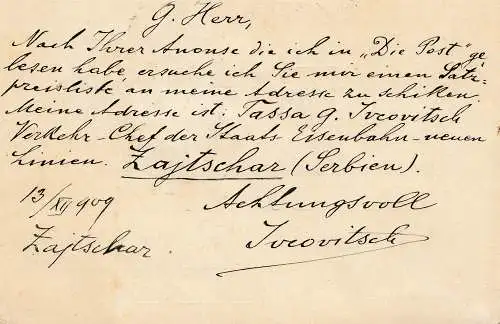 G. Herr,
Nach Ihrer Anonse die ich in „Die Post" ge
lesen habe, ersuche ich Sie mir einen Satz-
preisliste an meine Adresse zu schiken.
Meine Adresse ist: Tassa G. Ivcovitsch
Verkehr-Chef der Staats Eisenbahn-neuen
Linien. Zajtschar (Serbien).
13/XII 909 Achtungsvoll
Zajtschar. Ivcovitsch